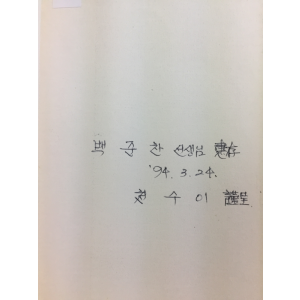 백 준 찬 선생님 惠存
'94. 3. 24.
수 이 謹呈